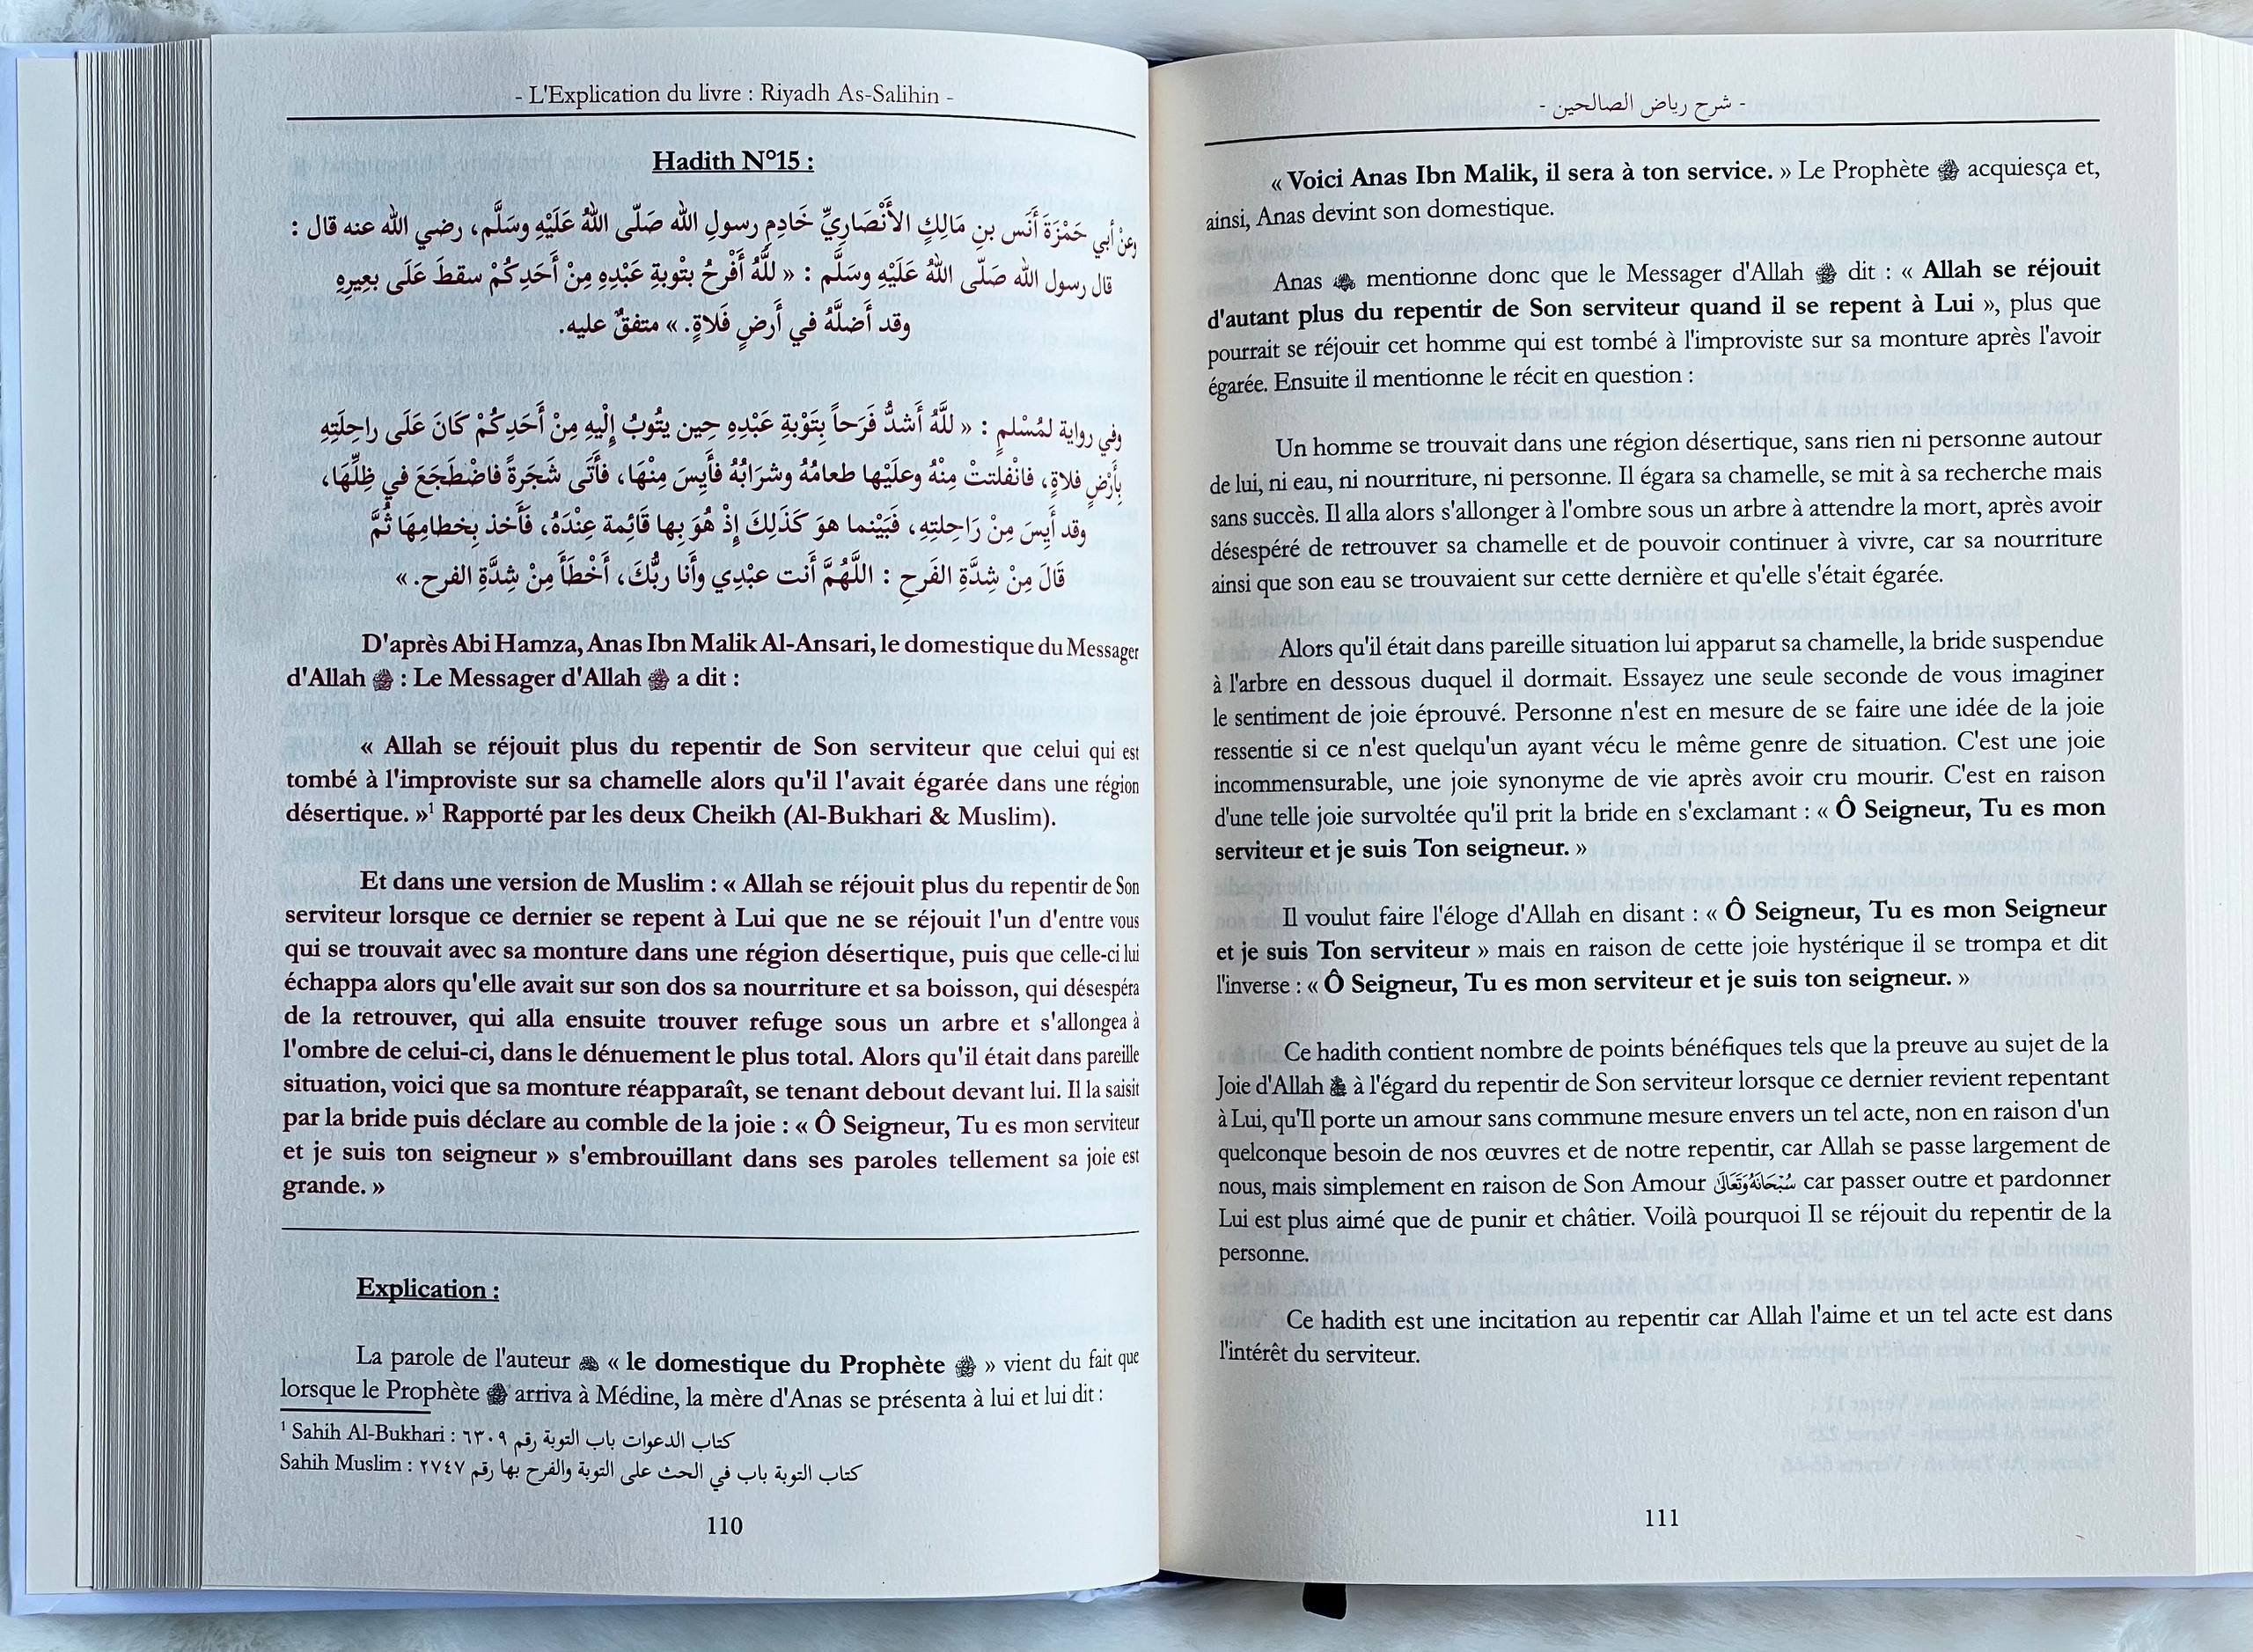 - L'Explication du livre : Riyadh As-Salihin -
Hadith N°15 :
وعَنْ أبي حَمْزَةَ أَنَس بن مَالِكٍ الأَنْصَارِيِّ خَادِمِ رسولِ الله صَلّى اللهُ عَلَيْهِ وسَلَّم، رضي الله عنه قال :
قال رسول الله صَلّى اللهُ عَلَيْهِ وسَلَّم : « للَّهُ أَفْرحُ بتْوبةِ عَبْدِهِ مِنْ أَحَدِكُمْ سقطَ عَلَى بعِيرِهِ
وقد أَضلَّهُ في أَرضٍ فَلاةٍ. » متفقٌ عليه.
وفي رواية لمُسْلمٍ : « للَّهُ أَشدُّ فَرَحاً بِتَوْبةِ عَبْدِهِ حِين يتُوبُ إِلْيهِ مِنْ أَحَدِكُمْ كَانَ عَلَى راحِلَتِهِ
بِأَرْضٍ فلاةٍ، فانْفلتتْ مِنْهُ وعلَيْها طعامُهُ وشرَابُهُ فأَيِسَ مِنْهَا، فأَتَى شَجَرةً فاضْطَجَعَ في ظِلِّهَا،
وقد أَيِسَ مِنْ رَاحِلتِهِ، فَبَيْنما هوَ كَذَلِكَ إِذْ هُوَ بِها قَائِمة عِنْدَهُ، فَأَخذ بِخطامِهَا ثُمَّ
قَالَ مِنْ شِدَّةِ الفَرحِ : اللَّهُمَّ أَنت عبْدِي وأَنا ربُّكَ، أَخْطَأَ مِنْ شِدَّةِ الفرح. »
D'après Abi Hamza, Anas Ibn Malik Al-Ansari, le domestique du Messager
d'Allah ﷺ : Le Messager d'Allah ﷺ a dit :
« Allah se réjouit plus du repentir de Son serviteur que celui qui est
tombé à l'improviste sur sa chamelle alors qu'il l'avait égarée dans une région
désertique. »¹ Rapporté par les deux Cheikh (Al-Bukhari & Muslim).
Et dans une version de Muslim : « Allah se réjouit plus du repentir de Son
serviteur lorsque ce dernier se repent à Lui que ne se réjouit l'un d'entre vous
qui se trouvait avec sa monture dans une région désertique, puis que celle-ci lui
échappa alors qu'elle avait sur son dos sa nourriture et sa boisson, qui désespéra
de la retrouver, qui alla ensuite trouver refuge sous un arbre et s'allongea à
l'ombre de celui-ci, dans le dénuement le plus total. Alors qu'il était dans pareille
situation, voici que sa monture réapparaît, se tenant debout devant lui. Il la saisit
par la bride puis déclare au comble de la joie : « Ô Seigneur, Tu es mon serviteur
et je suis ton seigneur » s'embrouillant dans ses paroles tellement sa joie est
grande. »
Explication :
La parole de l'auteur « le domestique du Prophète ﷺ » vient du fait que
lorsque le Prophète ﷺ arriva à Médine, la mère d'Anas se présenta à lui et lui dit :
¹ Sahih Al-Bukhari : كتاب الدعوات باب التوبة رقم ٦٣٠٩
Sahih Muslim : كتاب التوبة باب في الحث على التوبة والفرح بها رقم ٢٧٤٧
110
- شرح رياض الصالحين -
« Voici Anas Ibn Malik, il sera à ton service. » Le Prophète ﷺ acquiesça et,
ainsi, Anas devint son domestique.
Anas mentionne donc que le Messager d'Allah ﷺ dit : « Allah se réjouit
d'autant plus du repentir de Son serviteur quand il se repent à Lui », plus que
pourrait se réjouir cet homme qui est tombé à l'improviste sur sa monture après l'avoir
égarée. Ensuite il mentionne le récit en question :
Un homme se trouvait dans une région désertique, sans rien ni personne autour
de lui, ni eau, ni nourriture, ni personne. Il égara sa chamelle, se mit à sa recherche mais
sans succès. Il alla alors s'allonger à l'ombre sous un arbre à attendre la mort, après avoir
désespéré de retrouver sa chamelle et de pouvoir continuer à vivre, car sa nourriture
ainsi que son eau se trouvaient sur cette dernière et qu'elle s'était égarée.
Alors qu'il était dans pareille situation lui apparut sa chamelle, la bride suspendue
à l'arbre en dessous duquel il dormait. Essayez une seule seconde de vous imaginer
le sentiment de joie éprouvé. Personne n'est en mesure de se faire une idée de la joie
ressentie si ce n'est quelqu'un ayant vécu le même genre de situation. C'est une joie
incommensurable, une joie synonyme de vie après avoir cru mourir. C'est en raison
d'une telle joie survoltée qu'il prit la bride en s'exclamant : « Ô Seigneur, Tu es mon
serviteur et je suis Ton seigneur. »
Il voulut faire l'éloge d'Allah en disant : « Ô Seigneur, Tu es mon Seigneur
et je suis Ton serviteur » mais en raison de cette joie hystérique il se trompa et dit
l'inverse : « Ô Seigneur, Tu es mon serviteur et je suis ton seigneur. »
Ce hadith contient nombre de points bénéfiques tels que la preuve au sujet de la
Joie d'Allah à l'égard du repentir de Son serviteur lorsque ce dernier revient repentant
à Lui, qu'Il porte un amour sans commune mesure envers un tel acte, non en raison d'un
quelconque besoin de nos œuvres et de notre repentir, car Allah se passe largement de
nous, mais simplement en raison de Son Amour سُبْحَانَهُ وَتَعَالَىٰ car passer outre et pardonner
Lui est plus aimé que de punir et châtier. Voilà pourquoi Il se réjouit du repentir de la
personne.
Ce hadith est une incitation au repentir car Allah l'aime et un tel acte est dans
l'intérêt du serviteur.
111